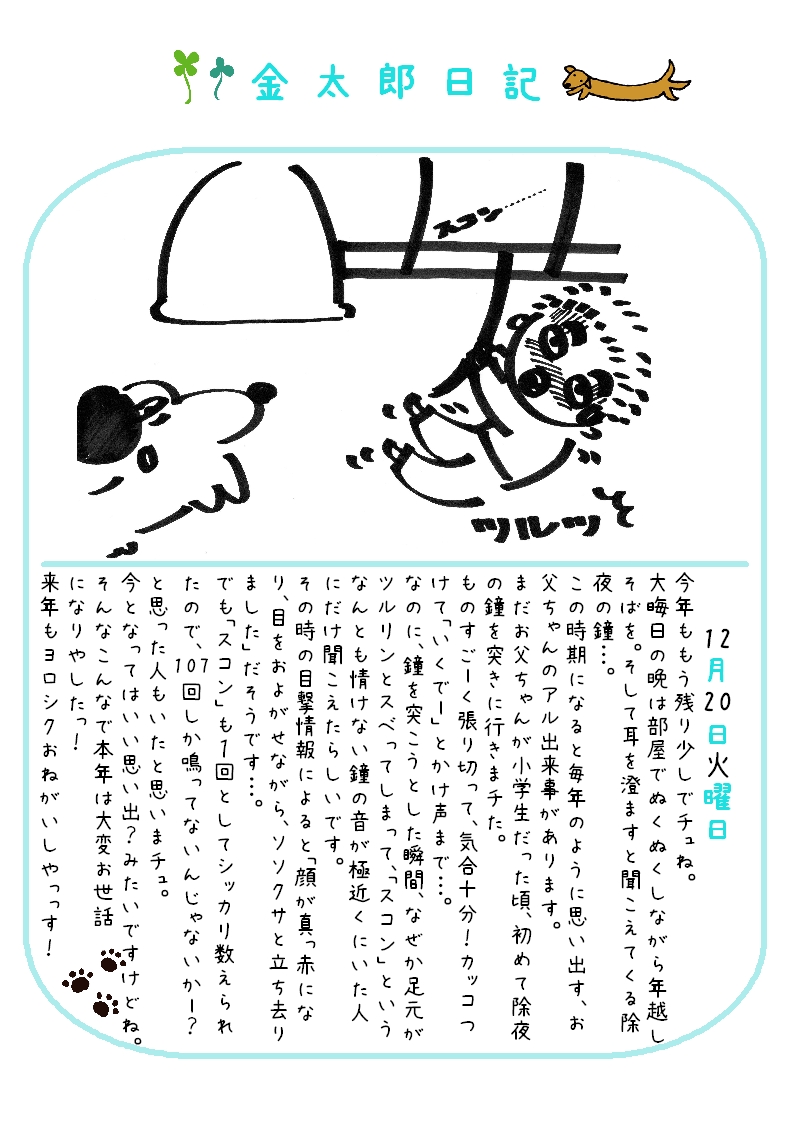 金太郎日記
スコン
ツルツ
12月20日火曜日
今年ももう残り少しでチュね。
大晦日の晩は部屋でぬくぬくしながら年越し
そばを。そして耳を澄ますと聞こえてくる除
夜の鐘…。
この時期になると毎年のように思い出す、お
父ちゃんのアル出来事があります。
まだお父ちゃんが小学生だった頃、初めて除夜
の鐘を突きに行きまチた。
ものすごーく張り切って、気合十分！カッコつ
けて「いくでー」とかけ声まで…。
なのに、鐘を突こうとした瞬間、なぜか足元が
ツルリンとスベってしまって、「スコン」という
なんとも情けない鐘の音が極近くにいた人
にだけ聞こえたらしいです。
その時の目撃情報によると「顔が真っ赤にな
り、目をおよがせながら、ソソクサと立ち去り
ました」だそうです…。
でも「スコン」も1回としてシッカリ数えられ
たので、107回しか鳴ってないんじゃないかー？
と思った人もいたと思いまチュ。
今となってはいい思い出？みたいですけどね。
そんなこんなで本年は大変お世話
になりやしたっ！
来年もヨロシクおねがいしやっっす！